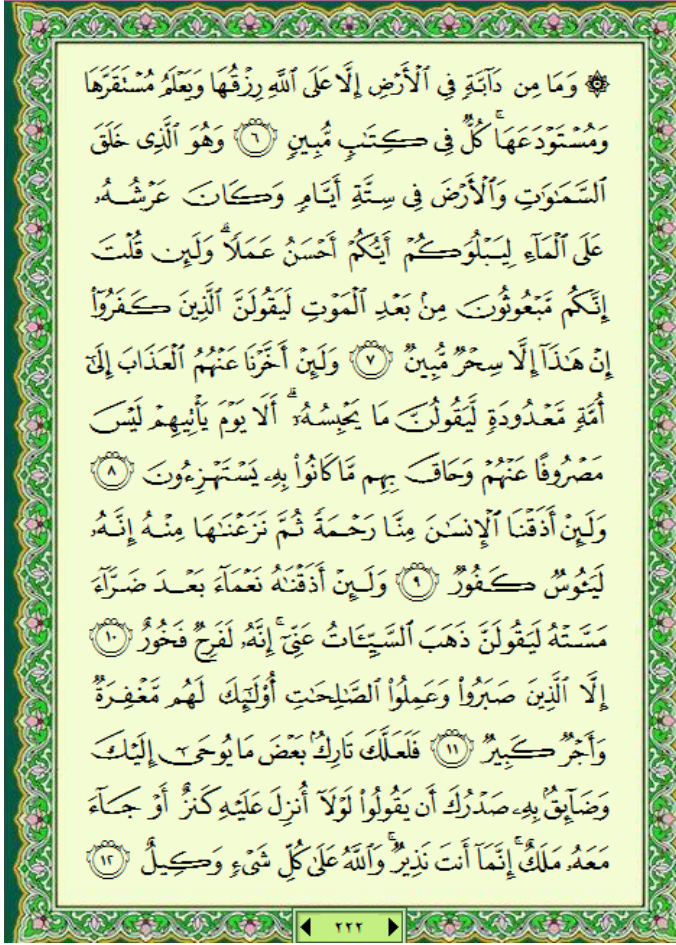 ۞ وَمَا مِن دَآبَّةٍ فِي ٱلْأَرْضِ إِلَّا عَلَى ٱللَّهِ رِزْقُهَا وَيَعْلَمُ مُسْتَقَرَّهَا
وَمُسْتَوْدَعَهَا ۚ كُلٌّ فِي كِتَٰبٍ مُّبِينٍ ٦ وَهُوَ ٱلَّذِي خَلَقَ
ٱلسَّمَٰوَٰتِ وَٱلْأَرْضَ فِي سِتَّةِ أَيَّامٍ وَكَانَ عَرْشُهُۥ
عَلَى ٱلْمَآءِ لِيَبْلُوَكُمْ أَيُّكُمْ أَحْسَنُ عَمَلًا ۗ وَلَئِن قُلْتَ
إِنَّكُم مَّبْعُوثُونَ مِنۢ بَعْدِ ٱلْمَوْتِ لَيَقُولَنَّ ٱلَّذِينَ كَفَرُوٓا۟
إِنْ هَٰذَآ إِلَّا سِحْرٌ مُّبِينٌ ٧ وَلَئِنْ أَخَّرْنَا عَنْهُمُ ٱلْعَذَابَ إِلَىٰٓ
أُمَّةٍ مَّعْدُودَةٍ لَّيَقُولُنَّ مَا يَحْبِسُهُۥٓ ۗ أَلَا يَوْمَ يَأْتِيهِمْ لَيْسَ
مَصْرُوفًا عَنْهُمْ وَحَاقَ بِهِم مَّا كَانُوا۟ بِهِۦ يَسْتَهْزِءُونَ ٨
وَلَئِنْ أَذَقْنَا ٱلْإِنسَٰنَ مِنَّا رَحْمَةً ثُمَّ نَزَعْنَٰهَا مِنْهُ إِنَّهُۥ
لَيَـُٔوسٌ كَفُورٌ ٩ وَلَئِنْ أَذَقْنَٰهُ نَعْمَآءَ بَعْدَ ضَرَّآءَ
مَسَّتْهُ لَيَقُولَنَّ ذَهَبَ ٱلسَّيِّـَٔاتُ عَنِّيٓ ۚ إِنَّهُۥ لَفَرِحٌ فَخُورٌ ١٠
إِلَّا ٱلَّذِينَ صَبَرُوا۟ وَعَمِلُوا۟ ٱلصَّٰلِحَٰتِ أُو۟لَٰٓئِكَ لَهُم مَّغْفِرَةٌ
وَأَجْرٌ كَبِيرٌ ١١ فَلَعَلَّكَ تَارِكٌۢ بَعْضَ مَا يُوحَىٰٓ إِلَيْكَ
وَضَآئِقٌۢ بِهِۦ صَدْرُكَ أَن يَقُولُوا۟ لَوْلَآ أُنزِلَ عَلَيْهِ كَنزٌ أَوْ جَآءَ
مَعَهُۥ مَلَكٌ ۚ إِنَّمَآ أَنتَ نَذِيرٌ ۚ وَٱللَّهُ عَلَىٰ كُلِّ شَىْءٍ وَكِيلٌ ١٢
٢٢٢